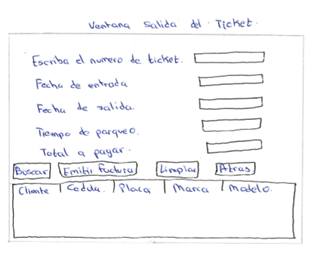 Ventana Salida del Ticket.
Escriba el numero de ticket.
Fecha de entrada
Fecha de salida.
Tiempo de parqueo.
Total a pagar.
Buscar Emitir Factura Limpiar Atras
Cliente Cedula. Placa Marca Modelo.